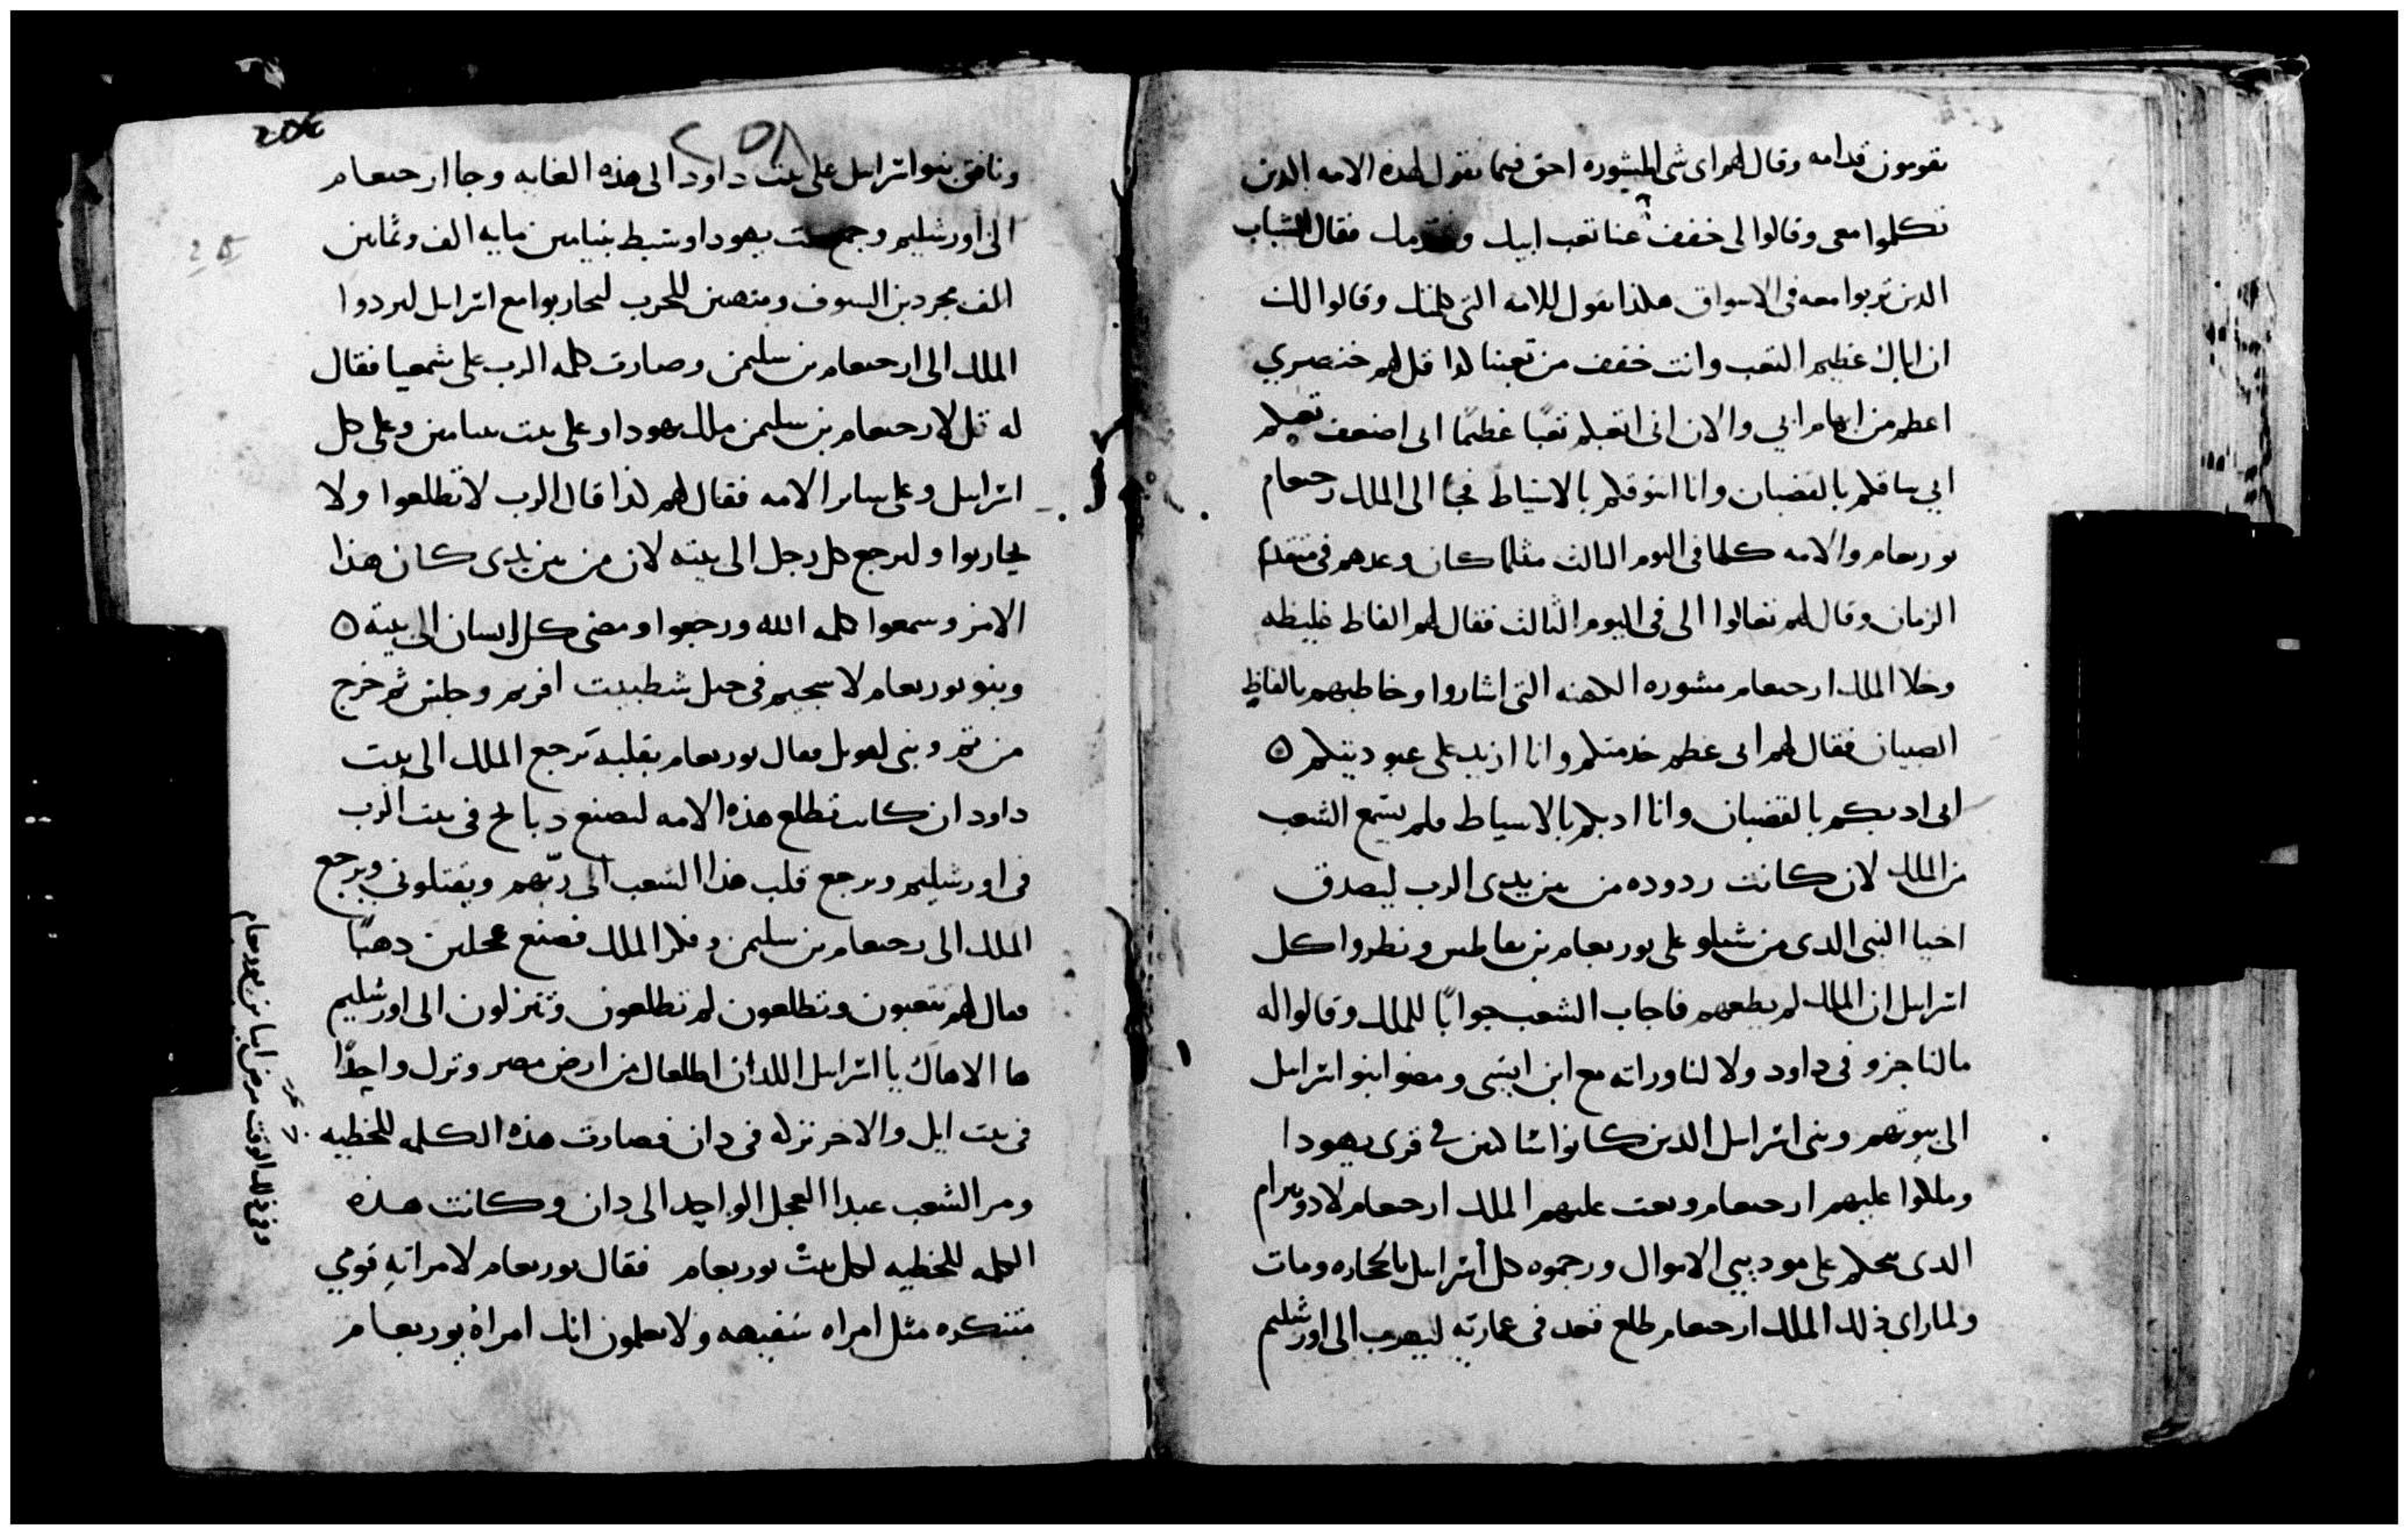 يقومون قدامه وقال لهم اى شى المشوره احق فيما نقول لهذه الامه الدين
تكلموا معى وقالوا لى خفف عنا تعب ابيك فقال الشباب
الدين تربوا معه فى الاسواق هكذا نقول للامه التى كلمتك وقالوا لك
ان اباك عظيم التعب وانت خفف من تعبنا كدا قل لهم خنصري
اعظم من ابهام ابي والان انى اتعبكم تعبًا عظيمًا ابى اضعف تعبكم
ابي ساقكم بالقضبان وانا اسوقكم بالاسياط فجا الى الملك رحبعام
يوربعام والامه كلها فى اليوم الثالث مثلما كان وعدهم فى متقدم
الزمان وقال لهم تعالوا الى فى اليوم الثالث فقال لهم الفاظ غليظه
وخلا الملك ارحبعام مشوره الكهنه التى اشاروا وخاطبهم بالفاظ
الصبيان فقال لهم ابى عظم خدمتكم وانا ازيد على عبوديتكم ۵
ابى ادبكم بالقضبان وانا ادبكم بالاسياط فلم يسمع الشعب
من الملك لان كانت ردوده من بين يدى الرب ليصدق
اخيا النبى الدى من شيلو على يوربعام بن ناطس ونظروا كل
اسرايل ان الملك لم يطعهم فاجاب الشعب جوابًا للملك وقالوا له
ما لنا جزو فى داود ولا لنا وراثه مع ابن ايشى ومضوا بنو اسرايل
الى بيوتهم وبنى اسرايل الدين كانوا ساكنين فى قرى يهودا
وملكوا عليهم ارحبعام وبعث عليهم الملك ارحبعام لادونيرام
الدى يحكم على موديي الاموال ورجموه كل اسرايل بالحجاره ومات
ولما راى ذلك الملك ارحبعام طلع قعد فى عمارته ليهرب الى اورشليم
ونافق بنو اسرايل على بيت داود الى هذه الغايه وجا ارحبعام
الى اورشليم وجمعت يهودا وسبط بنيامين مايه الف وثمانين
الف مجردين السيوف ومتهيين للحرب ليحاربوا مع اسرايل ليردوا
الملك الى ارحبعام بن سليمن وصارت كلمه الرب على شمعيا فقال
له قل لارحبعام بن سليمن ملك يهودا وعلى بيت بنيامين وعلى كل
اسرايل وعلى ساير الامه فقال لهم كدا قال الرب لا تطلعوا ولا
يحاربوا وليرجع كل رجل الى بيته لان من بين يدى كان هذا
الامر وسمعوا كلمه الله ورجعوا ومضى كل انسان الى بيته ۵
وبنو يوربعام لا سجيم فى جبل شطبيت افريم وجلس ثم خرج
من ثم وبنى لفويل فقال يوربعام بقلبه يرجع الملك الى بيت
داود ان كانت تطلع هذه الامه ليصنع دبايح فى بيت الرب
فى اورشليم ويرجع قلب هذا الشعب الى ربّهم ويقتلونى ويرجع
الملك الى رحبعام بن سليمن وفكر الملك فصنع عجلين دهبًا
فقال لهم تتعبون وتطلعون لم تطلعون وتنزلون الى اورشليم
ها الاهاك يا اسرايل اللدان اطلعاك من ارض مصر ونزل واحدًا
فى بيت ايل والاخر نزله فى دان فصارت هذه الكلمه للخطيه
ومر الشعب عبدا العجل الواحد الى دان وكانت هذه
الكلمه للخطيه لكل بيت يوربعام فقال يوربعام لامراته قومي
متنكره مثل امراه سفيهه ولا يعلمون انك امراة يوربعام
وفى ذلك الوقت مرض ابيا بن يوربعام